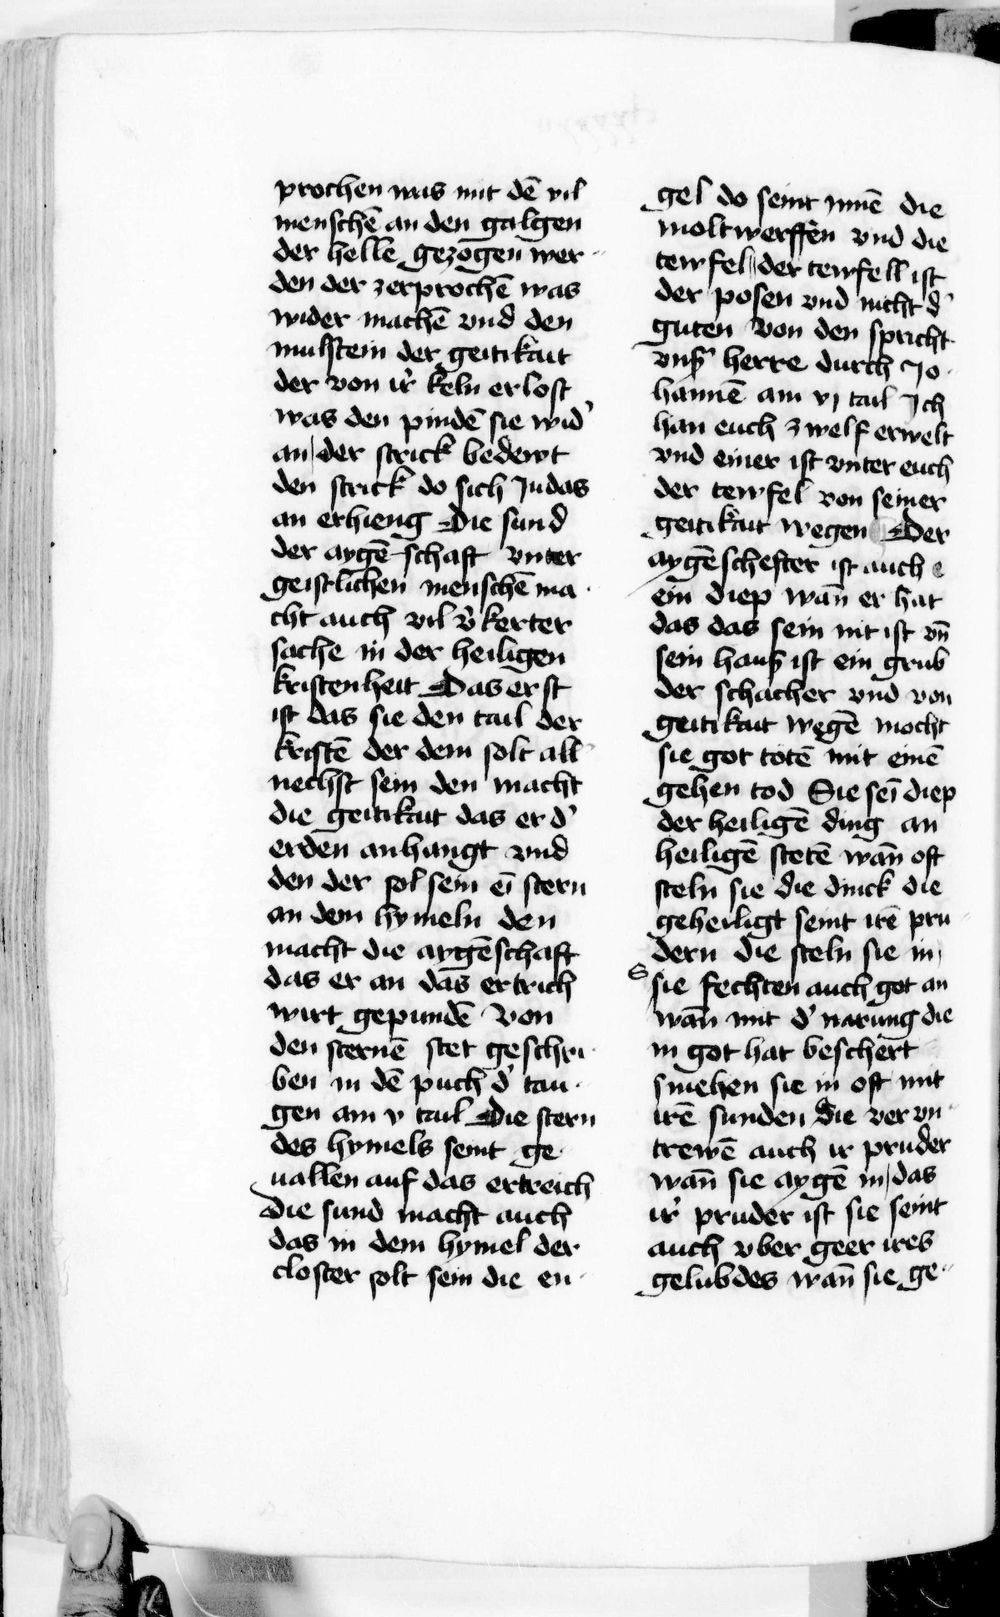 prochen was mit dē vil
menschē an den galgen
der helle gezogen wer
den der zerprochē was
wider machē vnd den
mulstein der geitikait
der von ir keln erlost
was den pindē sie wid'
an der strick bedewt
den strick do sich Judas
an erhieng Die sund
der aygēschaft vnter
geistlichen menschē ma
cht auch vil v'kerter
sache in der heiligen
kristenheit Das erst
ist das sie den tail der
kristē der dem solt all'
nechst sein den macht
die geitikait das er d'
erden anhangt vnd
den der sol sein eī stern
an dem hymeln den
macht die aygēschaft
das er an das ertrich
wirt gepundē Von
den sternē stet geschri
ben in dē puch d' tau
gen am v tail Die stern
des hymels seint ge
uallen auf das ertreich
Die sund macht auch
das in dem hymel der
closter solt sein die en
gel do seint ynnē die
moltwerffen vnd die
tewfel der tewfell ist
der posen vnd nicht d'
guten Von den spricht
vnß' herre durch Jo
hannē am vj tail Jch
han euch zwelf erwelt
vnd einer ist vnter euch
der tewfel von seiner
geitikait wegen Der
aygēschefter ist auch
ein diep wañ er hat
das das sein nit ist vñ
sein hauß ist ein grub
der schacher vnd von
geitikait wegē mocht
sie got totē mit einē
gehen tod Sie seī diep
der heiligē ding an
heiligē stetē wañ oft
steln sie die dinck die
geheiligt seint irē pru
dern die steln sie in
sie fechten auch got an
wañ mit d' narung die
in got hat beschert
smehen sie in oft mit
irē sunden die ver vn
trewē auch ir pruder
wañ sie aygē in das
ir pruder ist sie seint
auch vber geer ires
gelubdes wañ sie ge